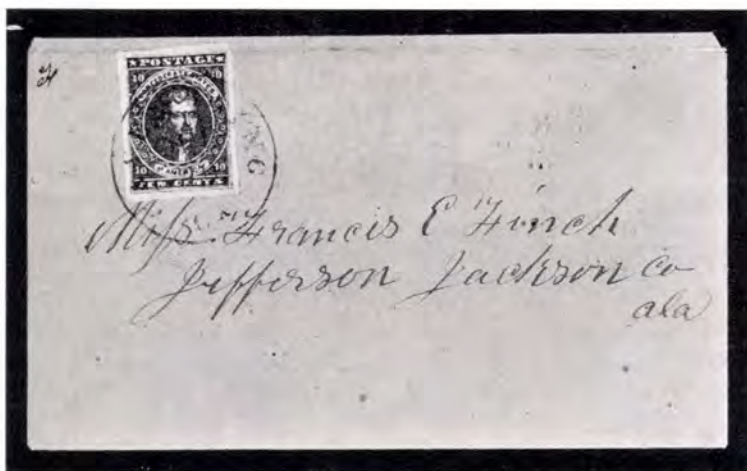 POSTAGE
10 10
10 10
TEN CENTS
Miss Francis E Finch
Jefferson Jackson Co
ala